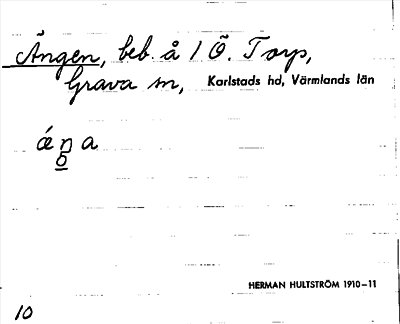 Ängen, beb. å 1 Ö. Torp,
Grava sn, Karlstads hd, Värmlands län
ǽn̥a
HERMAN HULTSTRÖM 1910-11
10